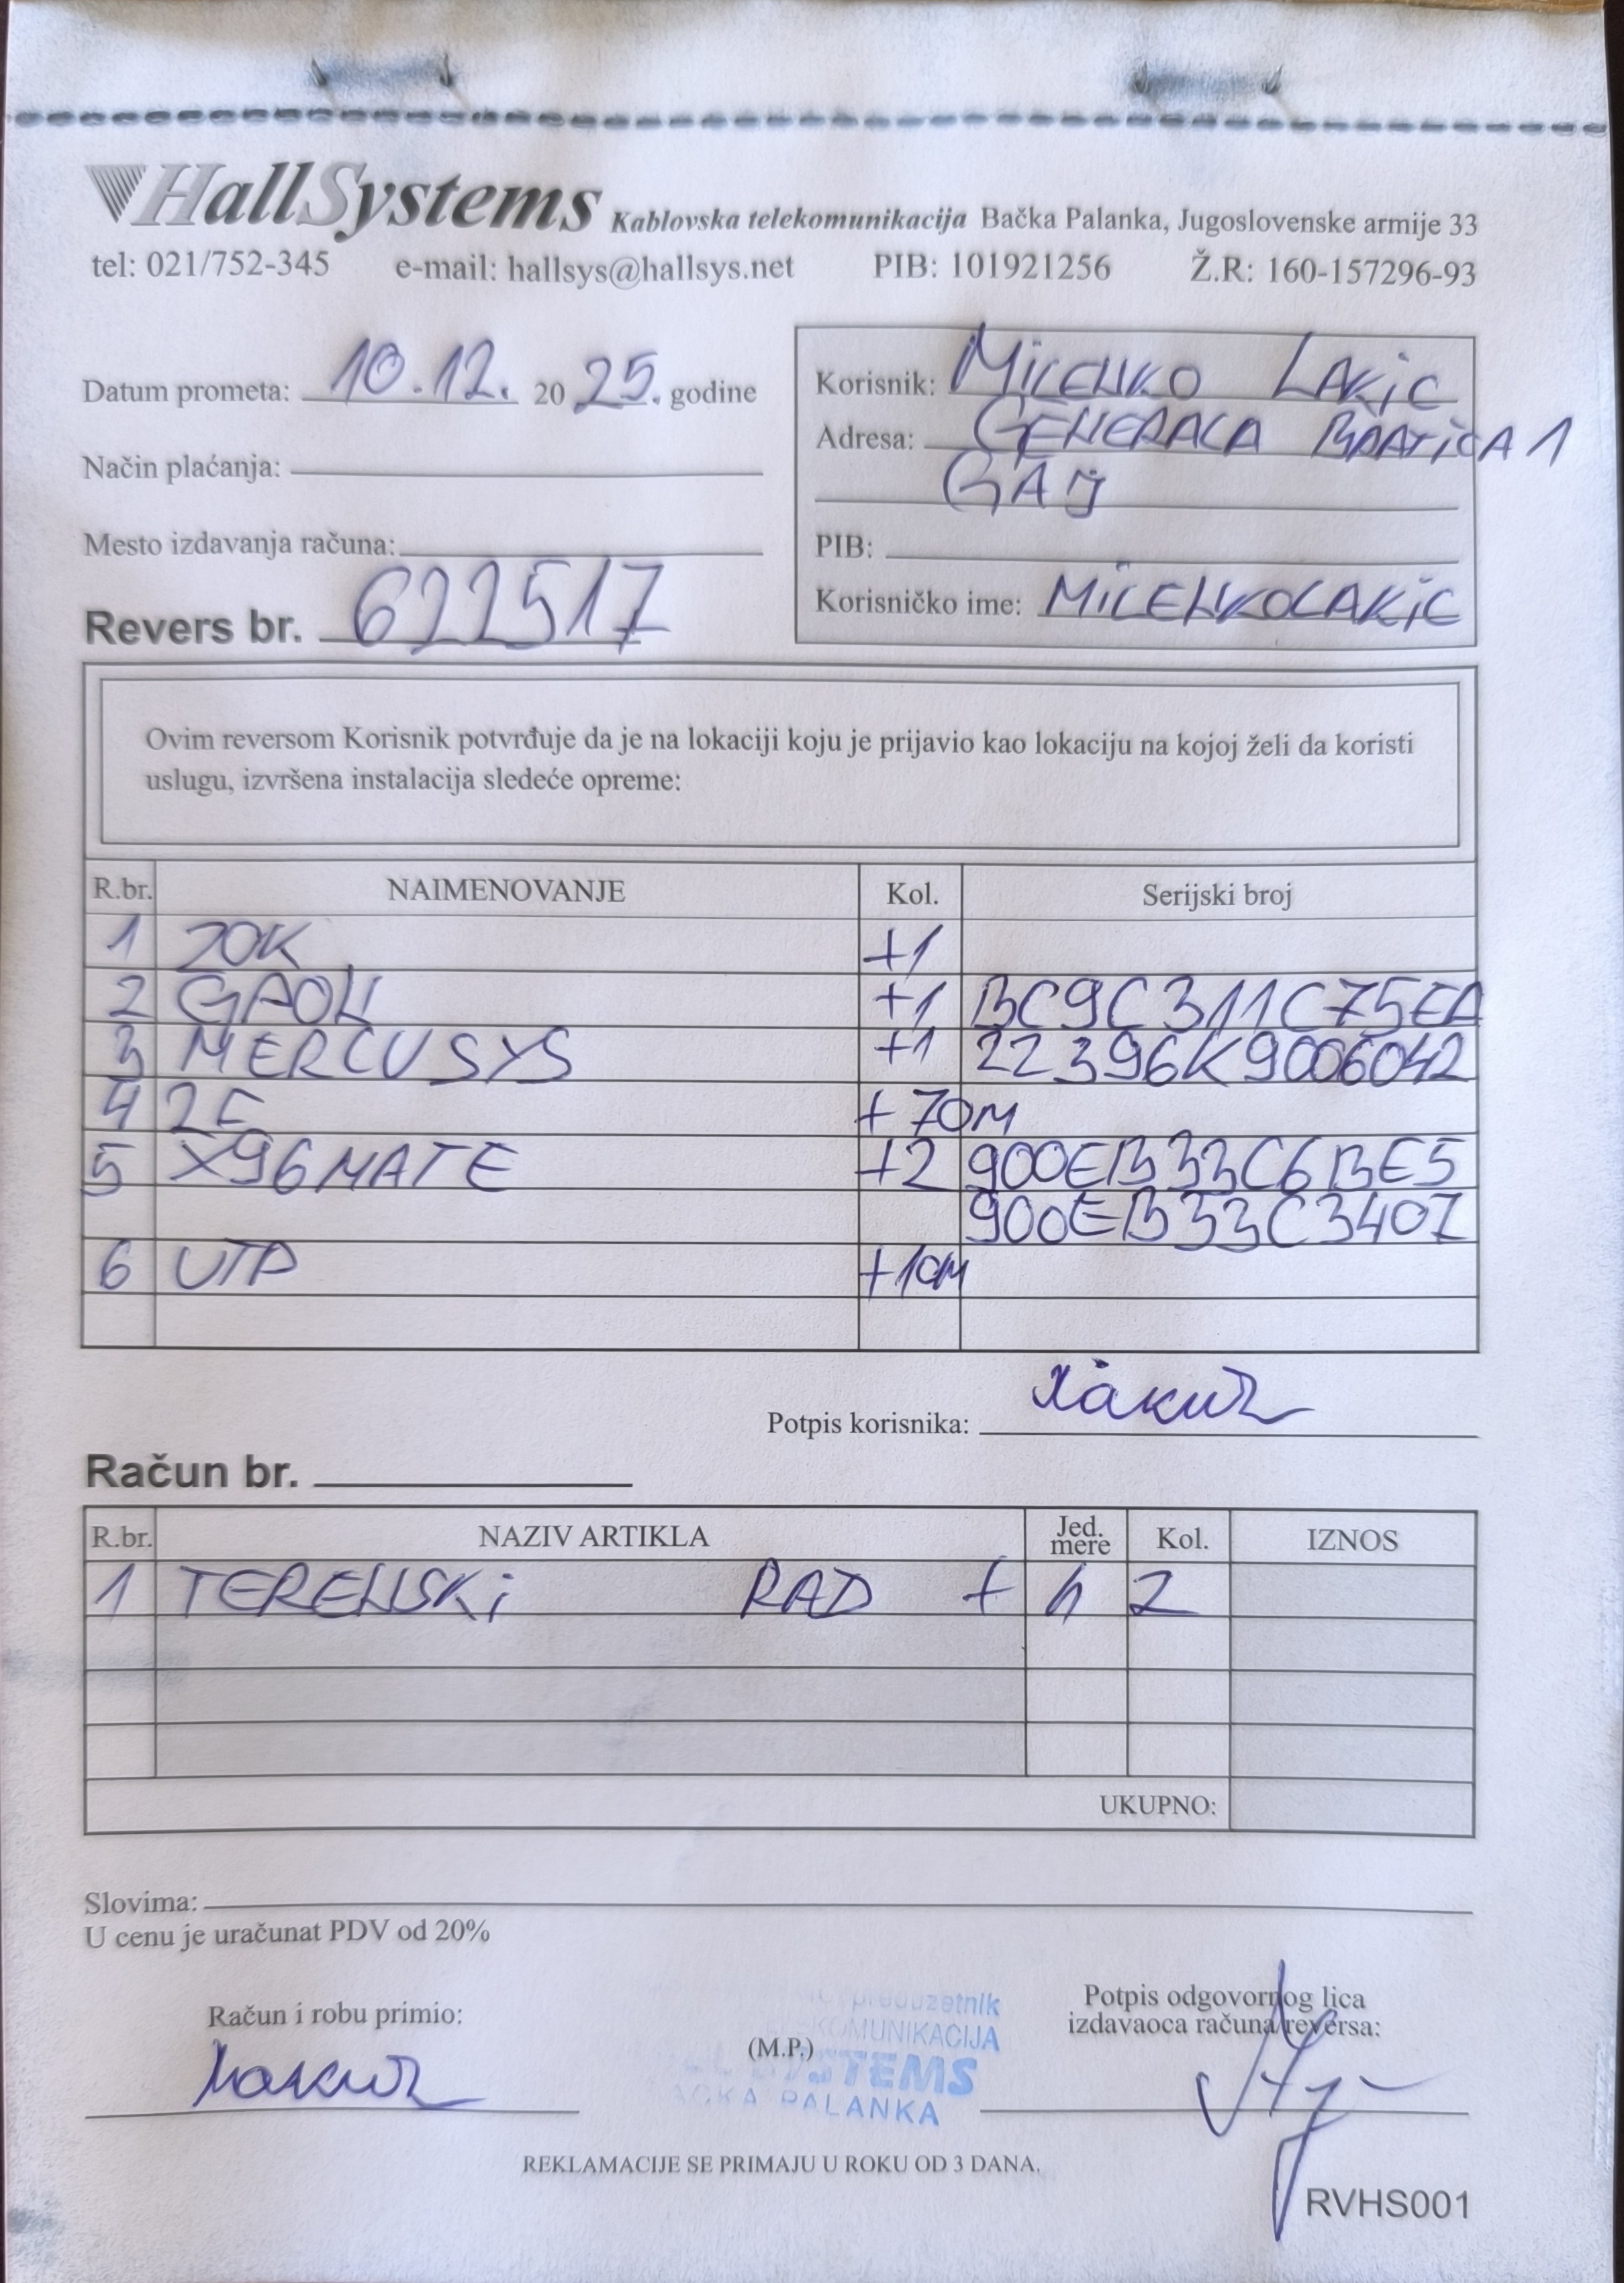 HallSystems Kablovska telekomunikacija Bačka Palanka, Jugoslovenske armije 33
tel: 021/752-345 e-mail: hallsys@hallsys.net PIB: 101921256 Ž.R: 160-157296-93
Datum prometa: 10.12. 2025. godine
Način plaćanja:
Mesto izdavanja računa:
Revers br. 622517
Korisnik: MILENKO LAKIC
Adresa: GENERALA BRATICA 1
GAJ
PIB:
Korisničko ime: MILENKOLAKIC
Ovim reversom Korisnik potvrđuje da je na lokaciji koju je prijavio kao lokaciju na kojoj želi da koristi
uslugu, izvršena instalacija sledeće opreme:
R.br. NAIMENOVANJE Kol. Serijski broj
1 ZOK +1
2 GPON +1 BC9C311C75EA
3 MERCUSYS +1 22396K9006042
4 2F +70M
5 X96MATE +2 900EB33C6BE5
900EB33C3407
6 UTP +10M
Potpis korisnika:
Račun br.
R.br. NAZIV ARTIKLA Jed. mere Kol. IZNOS
1 TERENSKI RAD + h 2
UKUPNO:
Slovima:
U cenu je uračunat PDV od 20%
Račun i robu primio:
(M.P.)
preduzetnik
KOMUNIKACIJA
SYSTEMS
BAČKA PALANKA
Potpis odgovornog lica
izdavaoca računa/reversa:
REKLAMACIJE SE PRIMAJU U ROKU OD 3 DANA.
RVHS001